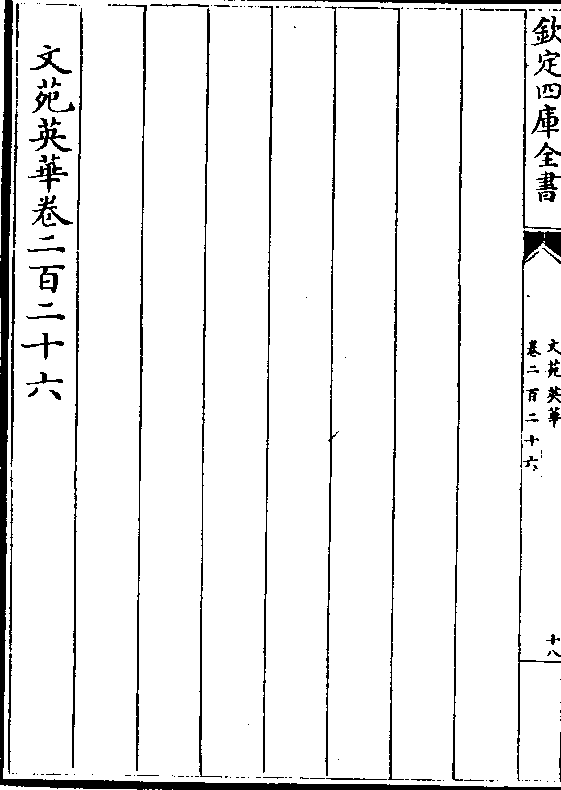 欽定四庫全書
文苑英華
卷二百二十六
十八
文苑英華卷二百二十六